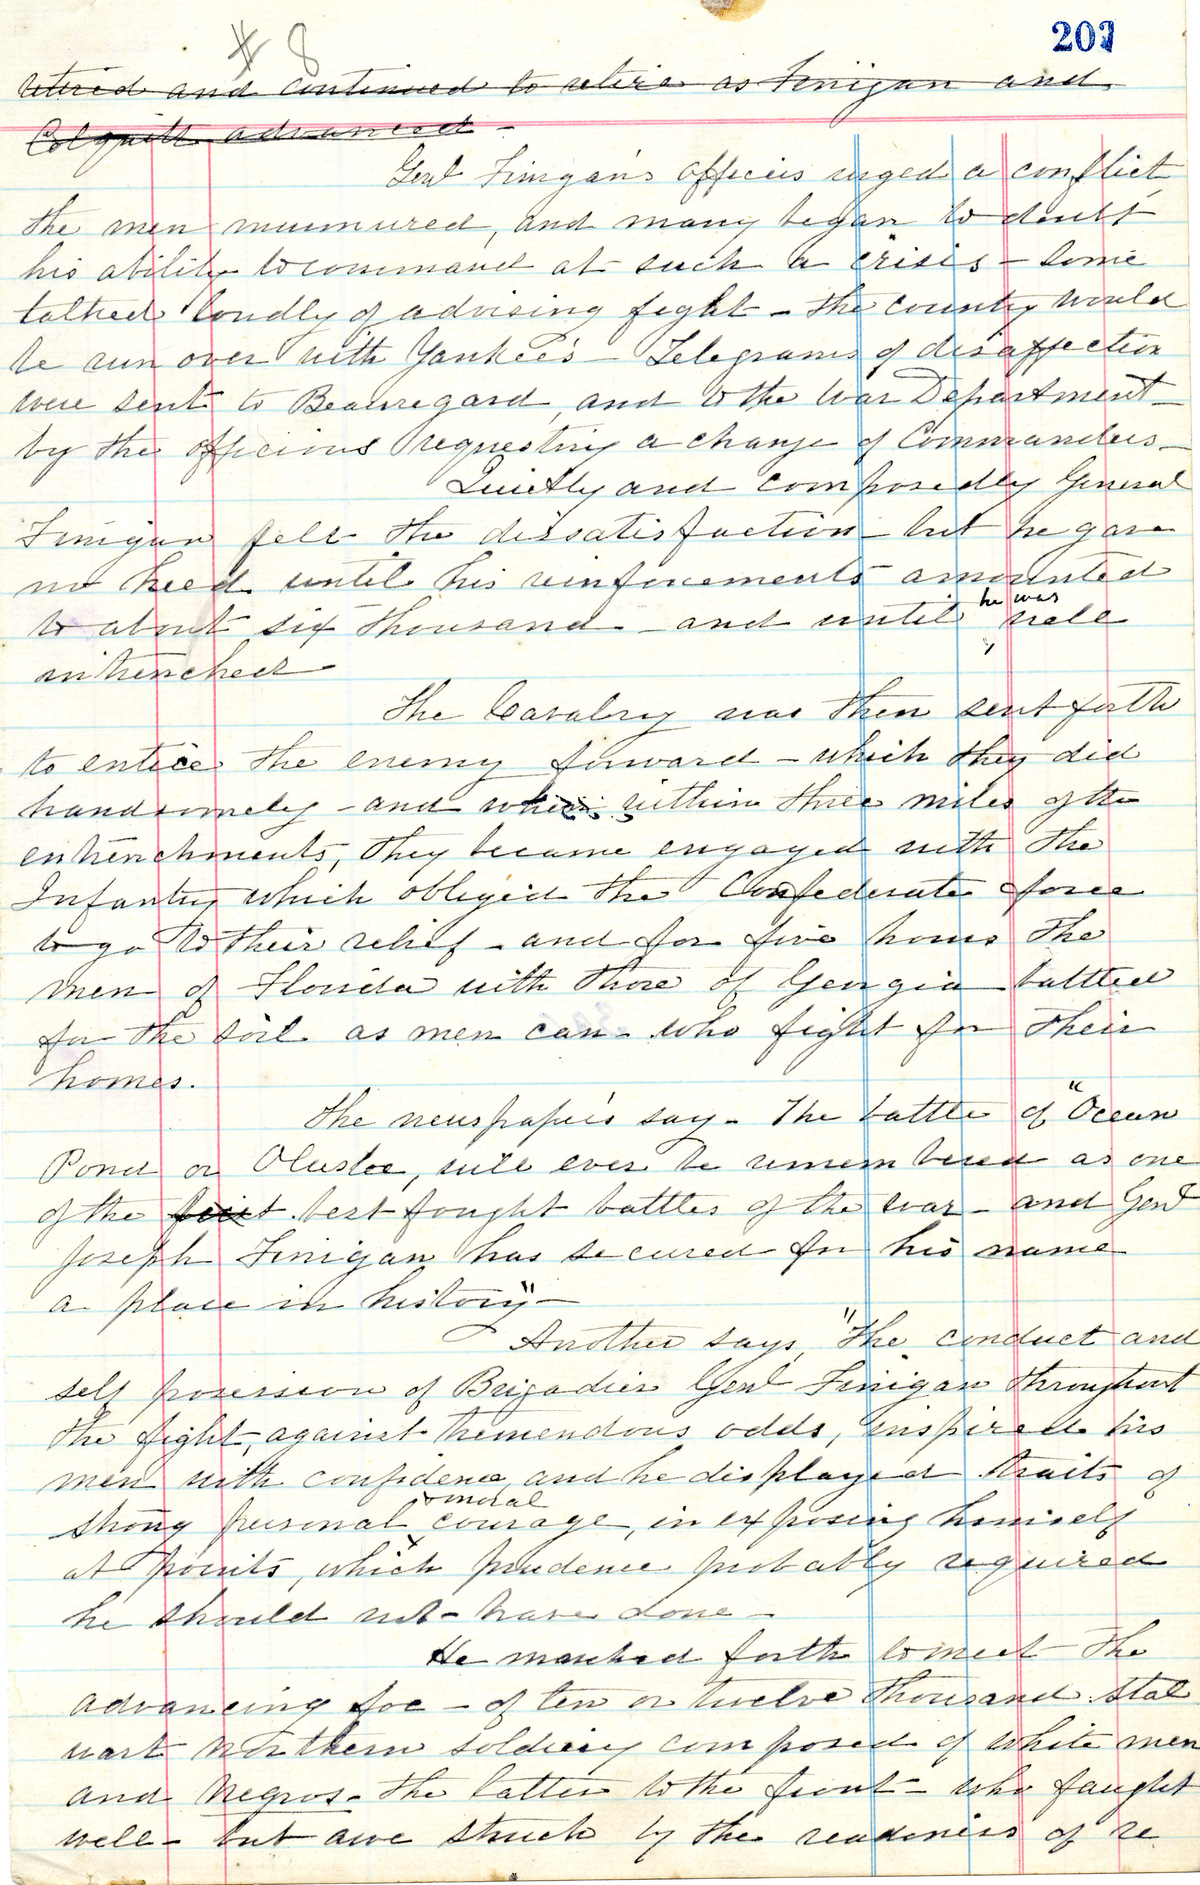 207
# 8
retired and continued to retire as Finigan and
Colquitt advanced -
Genl Finigan's officers urged a conflict,
the men murmured, and many began to doubt
his ability to command at such a crisis - Some
talked loudly of advising fight - The country would
be run over with Yankees - Telegrams of disaffection
were sent to Beauregard, and to the War Department
by the officious requesting a change of Commanders -
Quietly and composedly General
Finigan felt the dissatisfaction - but he gave
no heed until his reinforcements amounted
to about six thousand - and until he was well
intrenched -
The Cavalry was then sent forth
to entice the enemy forward - which they did
handsomely - and when within three miles of the
entrenchments, they became engaged with the
Infantry which obliged the Confederate force
to go to their relief - and for five hours the
men of Florida with those of Georgia battled
for the soil as men can who fight for their
homes.
The newspapers say - The battle of "Ocean
Pond or Olustee, will ever be remembered as one
of the best fought battles of the war - and Genl
Joseph Finigan has secured for his name
a place in history" -
Another says, "The conduct and
self posession of Brigadier Genl Finigan throughout
the fight, against tremendous odds, inspired his
men with confidence, and he displayed traits of
strong personal moral courage, in exposing himself
at points, which prudence probably required
he should not - have done -
He marched forth to meet the
advancing foe - of ten or twelve thousand stal
wart Northern soldiery composed of white men
and Negros - the latter to the front - who faught
well - but awe struck by the readiness of re